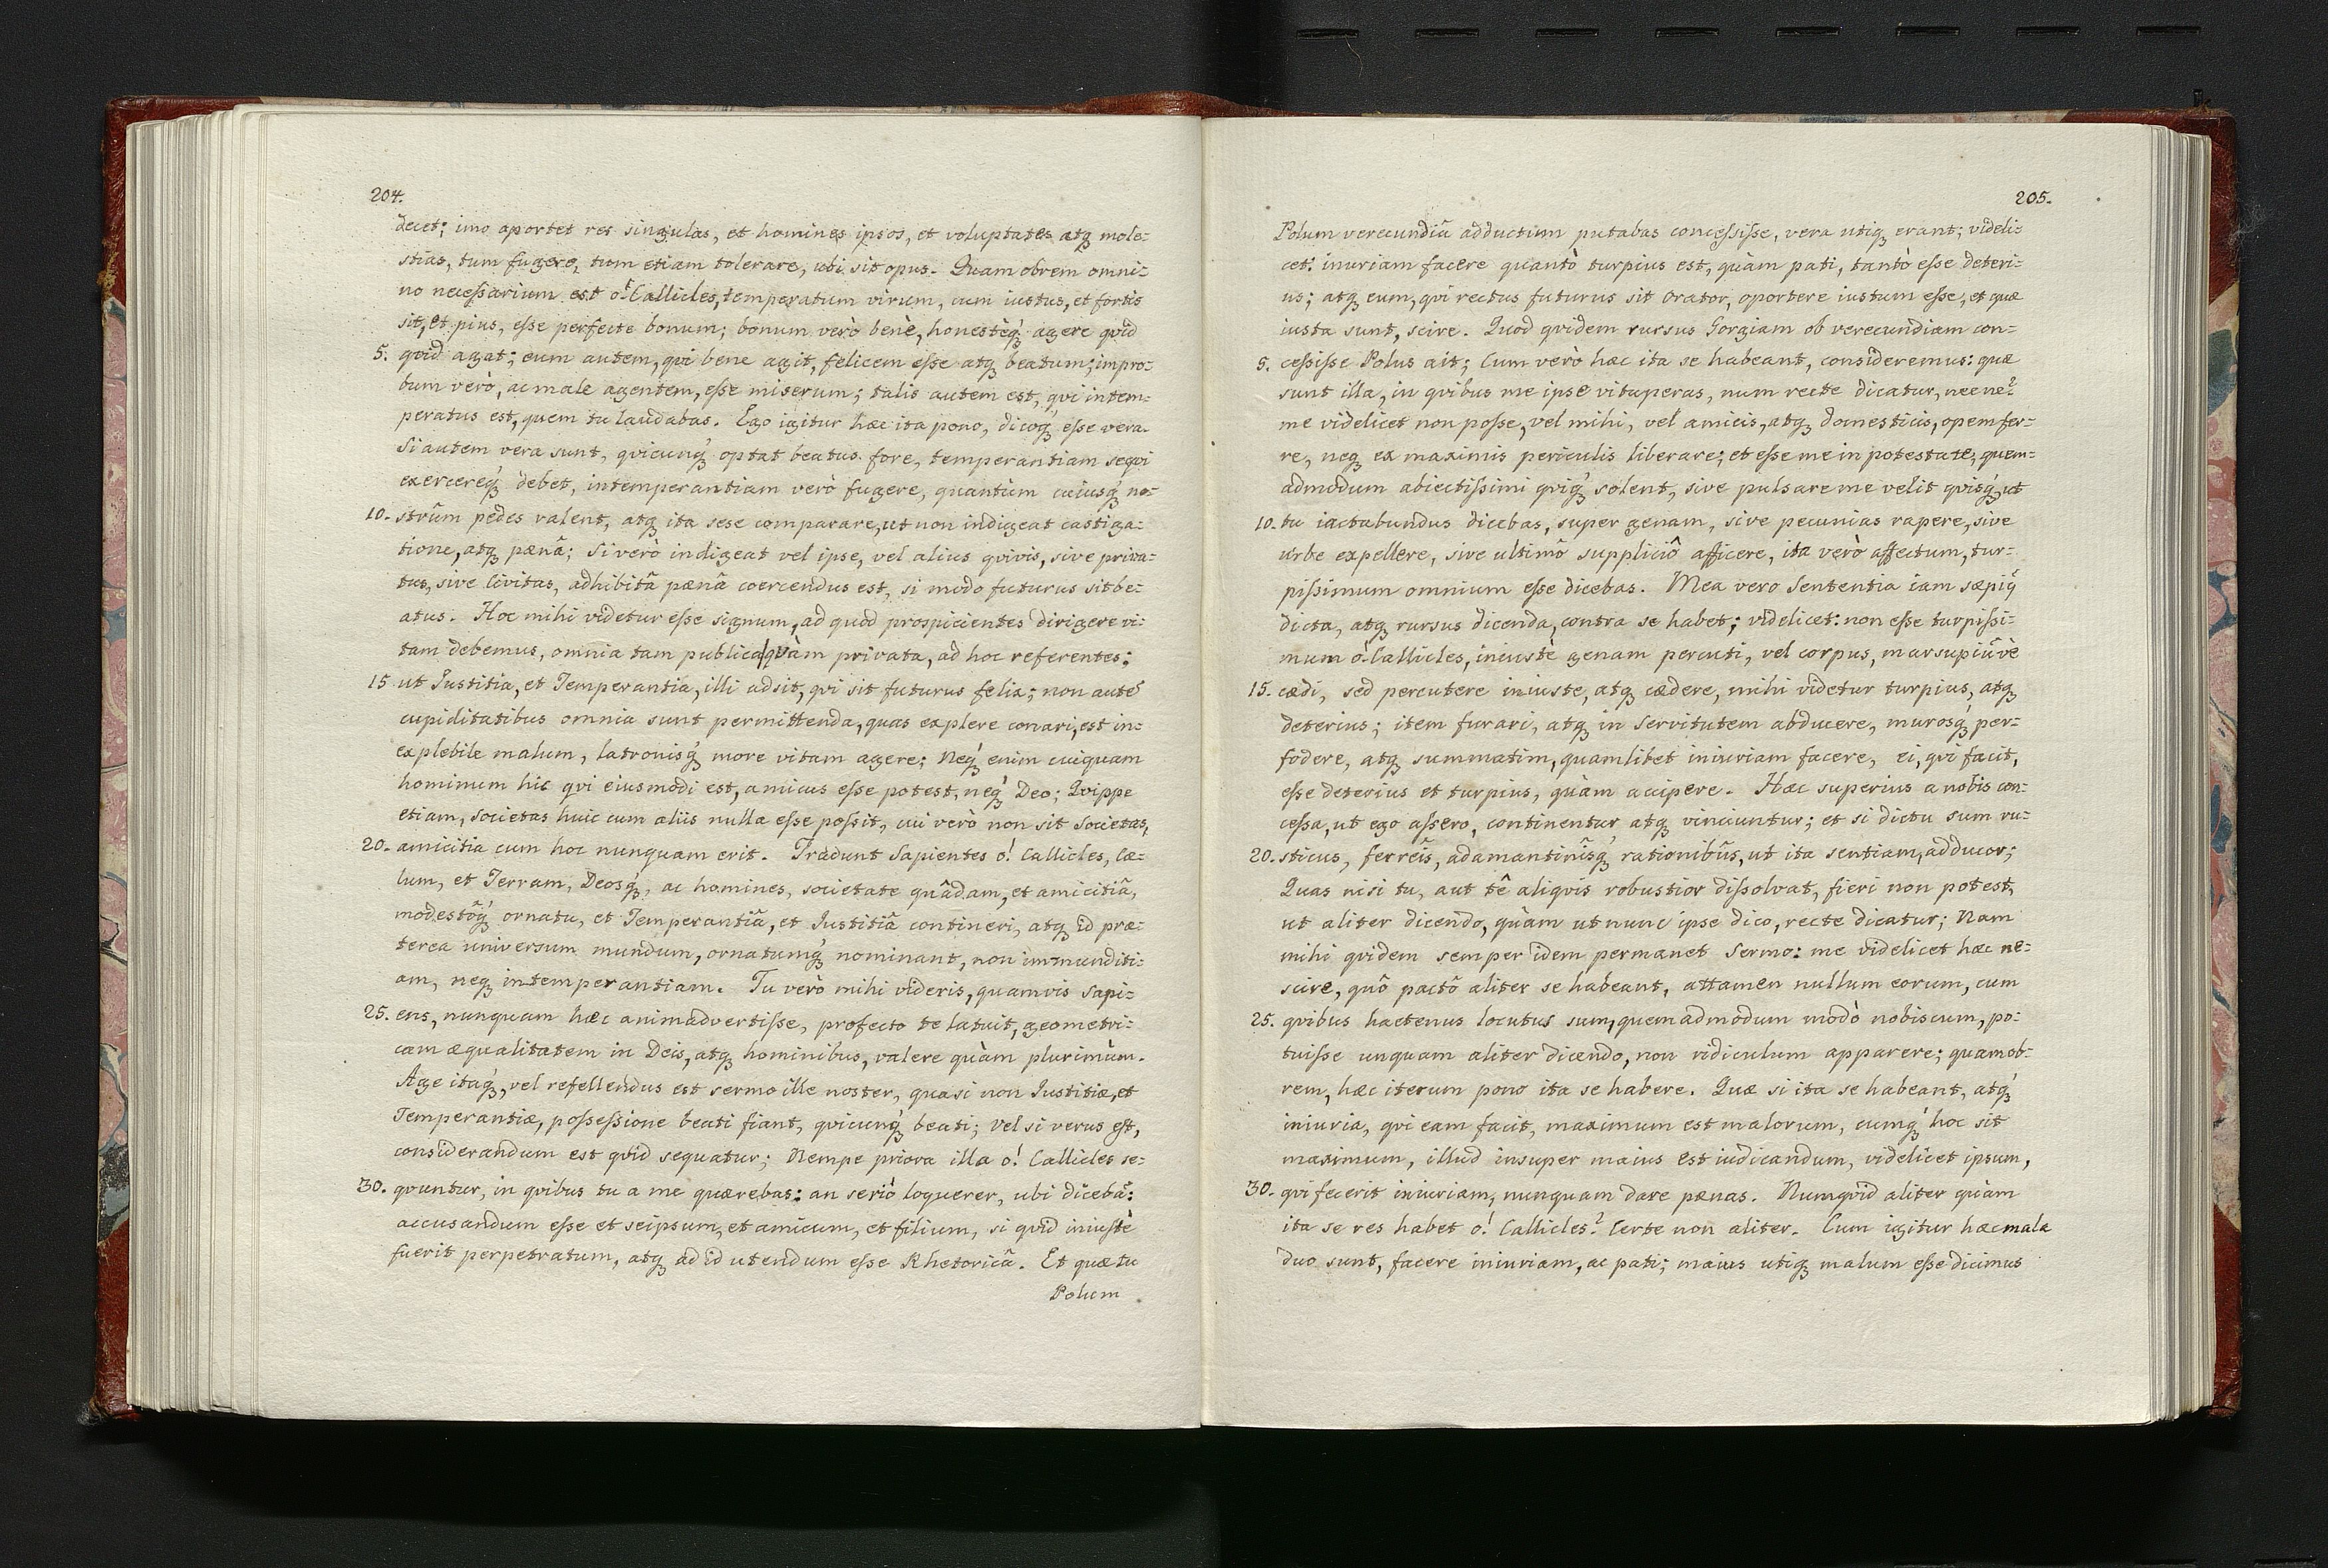 204.
decet; imo oportet res singulas, et homines ipsos, et voluptates atq; mole-
stias, tum fugere, tum etiam tolerare, ubi sit opus. Quam obrem omni-
no necessarium est o! Callicles, temperatum virum, cum iustus, et fortis
sit, et pius, esse perfecte bonum; bonum verò benè, honestèq; agere qvid
5. qvid agat; eum autem, qvi bene agit, felicem esse atq; beatum; impro-
bum verò, ac male agentem, esse miserum; talis autem est, qvi intem-
peratus est, quem tu laudabas. Ego igitur hæc ita pono, dicoq; esse vera.
Si autem vera sunt, qvicunq; optat beatus fore, temperantiam seqvi
exercereq; debet, intemperantiam verò fugere, quantùm cuiusq; no-
10. strûm pedes valent, atq; ita sese comparare, ut non indigeat castiga-
tione, atq; pænâ; Si verò indigeat vel ipse, vel alius qvivis, sive priva-
tus, sive Civitas, adhibitâ pænâ coercendus est, si modo futurus sit be-
atus. Hoc mihi videtur esse signum, ad quod prospicientes dirigere vi-
tam debemus, omnia tam publica|qvàm privata, ad hoc referentes;
15 ut Justitia, et Temperantia, illi adsit, qvi sit futurus felix; non autē
cupiditatibus omnia sunt permittenda, quas explere conari, est in-
explebile malum, latronisq; more vitam agere; Neq; enim cuiquam
hominum hic qvi eiusmodi est, amicus esse potest, neq; Deo; Qvippe
etiam, societas huic cum aliis nulla esse possit, cui verò non sit Societas,
20. amicitia cum hoc nunquam erit. Tradunt Sapientes o! Callicles, Cæ-
lum, et Terram, Deosq;, ac homines, societate quâdam, et amicitiâ,
modestôq; ornatu, et Temperantiâ, et Justitiâ contineri, atq; id præ-
terea universum mundum, ornatumq; nominant, non immunditi-
am, neq; intemperantiam. Tu verò mihi videris, quamvis Sapi-
25. ens, nunquam hæc animadvertisse, profecto te latuit, geometri-
cam æqualitatem in Deis, atq; hominibus, valere quàm plurimùm.
Age itaq;, vel refellendus est sermo ille noster, quasi non Justitiæ, et
Temperantiæ, possessione beati fiant, qvicunq; beati; vel si verus est,
considerandum est qvid sequatur; Nempe priora illa o! Callicles se-
30. qvuntur, in qvibus tu a me quærebas: an seriò loquerer, ubi dicebā:
accusandum esse et seipsum, et amicum, et filium, si qvid iniustè
fuerit perpetratum, atq; ad id utendum esse Rhetoricâ. Et quæ tu
Polum
205.
Polum verecundiâ adductum putabas concessisse, vera utiq; erant; videli-
cet: iniuriam facere quantò turpius est, quàm pati, tantò esse deteri-
us; atq; eum, qvi rectus futurus sit Orator, oportere iustum esse, et quæ
iusta sunt, scire. Quod qvidem rursus Gorgiam ob verecundiam con-
5. cessisse Polus ait; Cum verò hæc ita se habeant, consideremus: quæ
sunt illa, in qvibus me ipse vituperas, num recte dicatur, necne?
me videlicet non posse, vel mihi, vel amicis, atq; domesticis, opem fer-
re, neq; ex maximis periculis liberare; et esse me in potestate, quem-
admodum abiectissimi qviq; solent, sive pulsare me velit qvisq;, ut
10. tu iactabundus dicebas, super genam, sive pecunias rapere, sive
urbe expellere, sive ultimô suppliciô afficere, ita verò affectum, tur-
pissimum omnium esse dicebas. Mea vero Sententia iam sæpiꝰ
dicta, atq; rursus dicenda, contra se habet; videlicet: non esse turpissi-
mum o! Callicles, iniuste genam percuti, vel corpus, marsupiūvè
15. cædi, sed percutere iniuste, atq; cædere, mihi videtur turpius, atq;
deterius; item furari, atq; in Servitutem abducere, murosq; per-
fodere, atq; summatim, quamlibet iniuriam facere, ei, qvi facit,
esse deterius et turpius, quàm accipere. Hæc superius a nobis con-
cessa, ut ego assero, continentur atq; vinciuntur; et si dictu sum ru-
20. sticus, ferreîs, adamantinîsq; rationibûs, ut ita sentiam, adducor;
Quas nisi tu, aut tê aliqvis robustior dissolvat, fieri non potest,
ut aliter dicendo, quàm ut nunc ipse dico, recte dicatur; Nam
mihi qvidem semper idem permanet Sermo: me videlicet hæc ne-
scire, quô pactô aliter se habeant, attamen nullum eorum, cum
25. qvibus hactenus locutus sum, quemadmodum modò nobiscum, po-
tuisse unquam aliter dicendo, non ridiculum apparere; quamob-
rem, hæc iterum pono ita se habere. Quæ si ita se habeant, atq;
iniuria, qvi eam facit, maximum est malorum, cumq; hoc sit
maximum, illud insuper maius est iudicandum, videlicet ipsum,
30. qvi fecerit iniuriam, nunquam dare pænas. Numqvid aliter quàm
ita se res habet o! Callicles? Certe non aliter. Cum igitur hæc mala
duo sunt, facere iniuriam, ac pati; maius utiq; malum esse dicimus